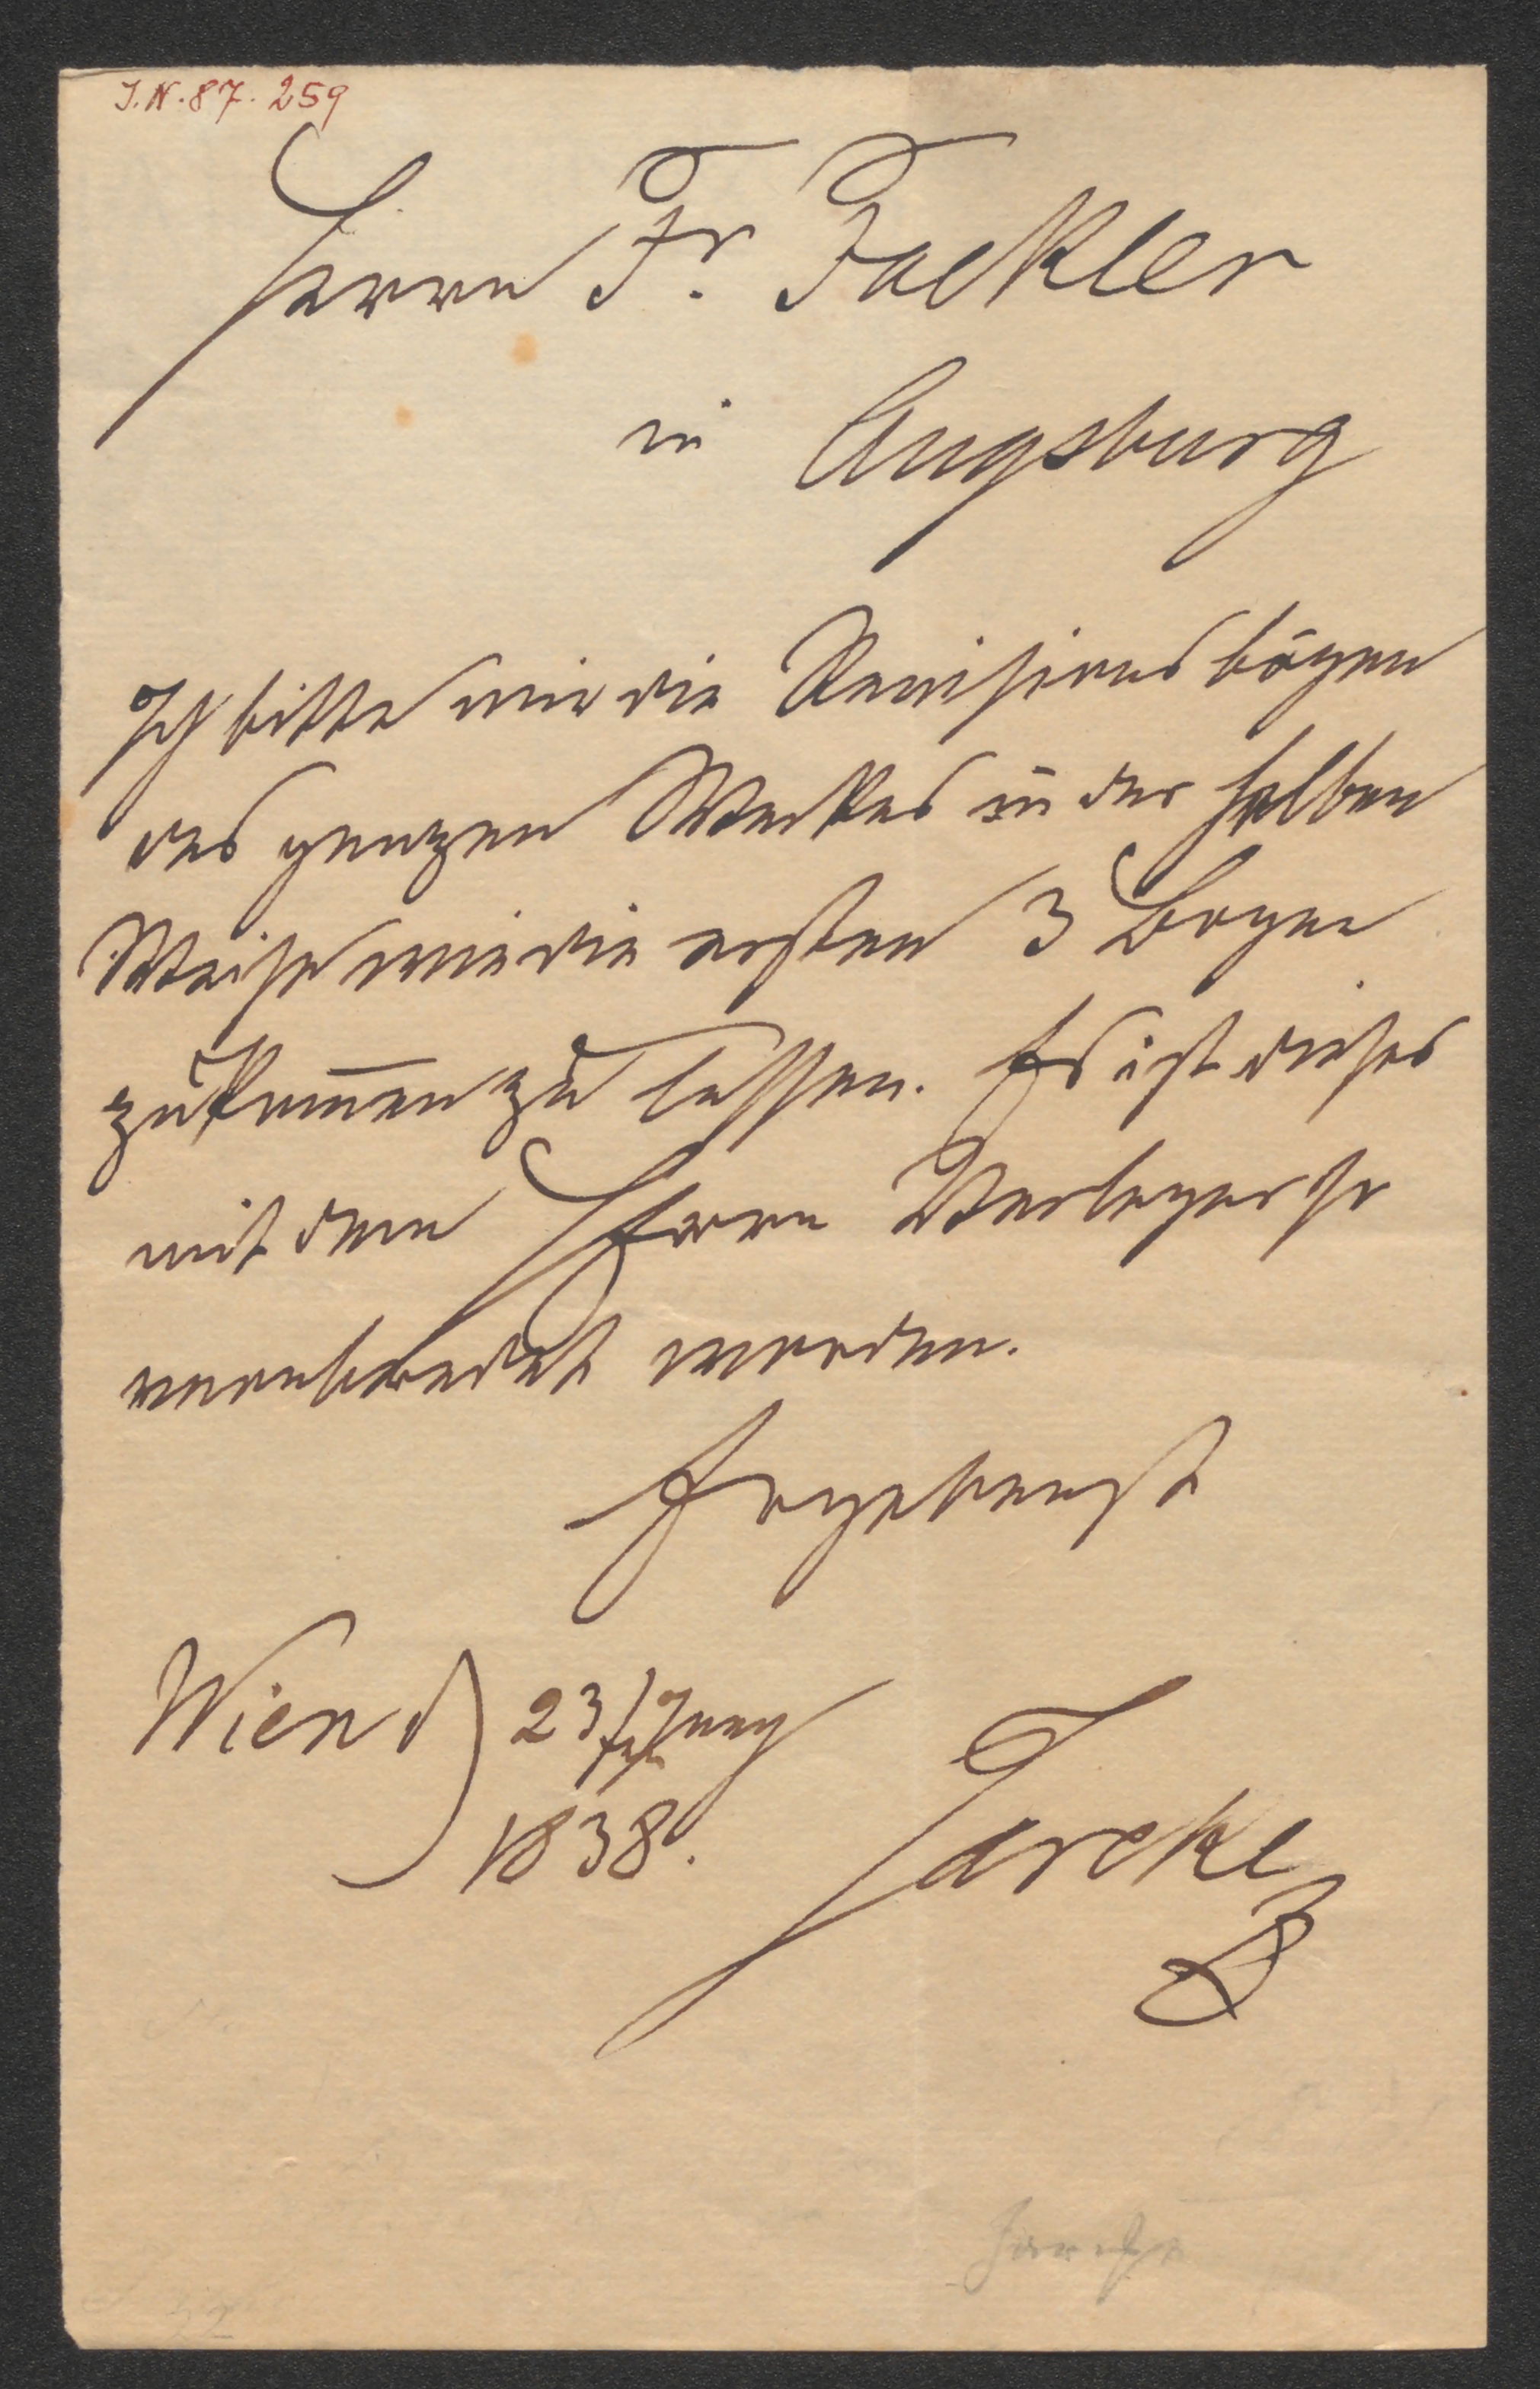 I.N. 87.259
Herrn Fr. Fackler
in Augsburg
Ich bitte mir die Revisionsbögen
des ganzen Werkes in der selben
Weise wie die ersten 3 Bogen
zukom̅en zu lassen. Es ist dieses
mit dem Herrn Verleger so
verabredet worden.
Ergebenst
Wien d 23/ Juny
1838. Jarcke
Jarcke